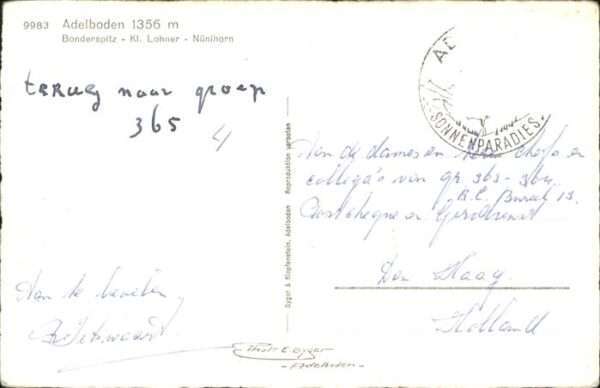 9983 Adelboden 1356 m
Bonderspitz - Kl. Lohner - Nünihorn
terug naar groep
365
4
Aan te bevelen
Gyger & Klopfenstein, Adelboden Reproduktion verboten
AD
SONNENPARADIES.
Aan de dames en chefs en
collega's van gr. 363 - 364
Bureel 13
en
Den Haag
Holland
Adelboden